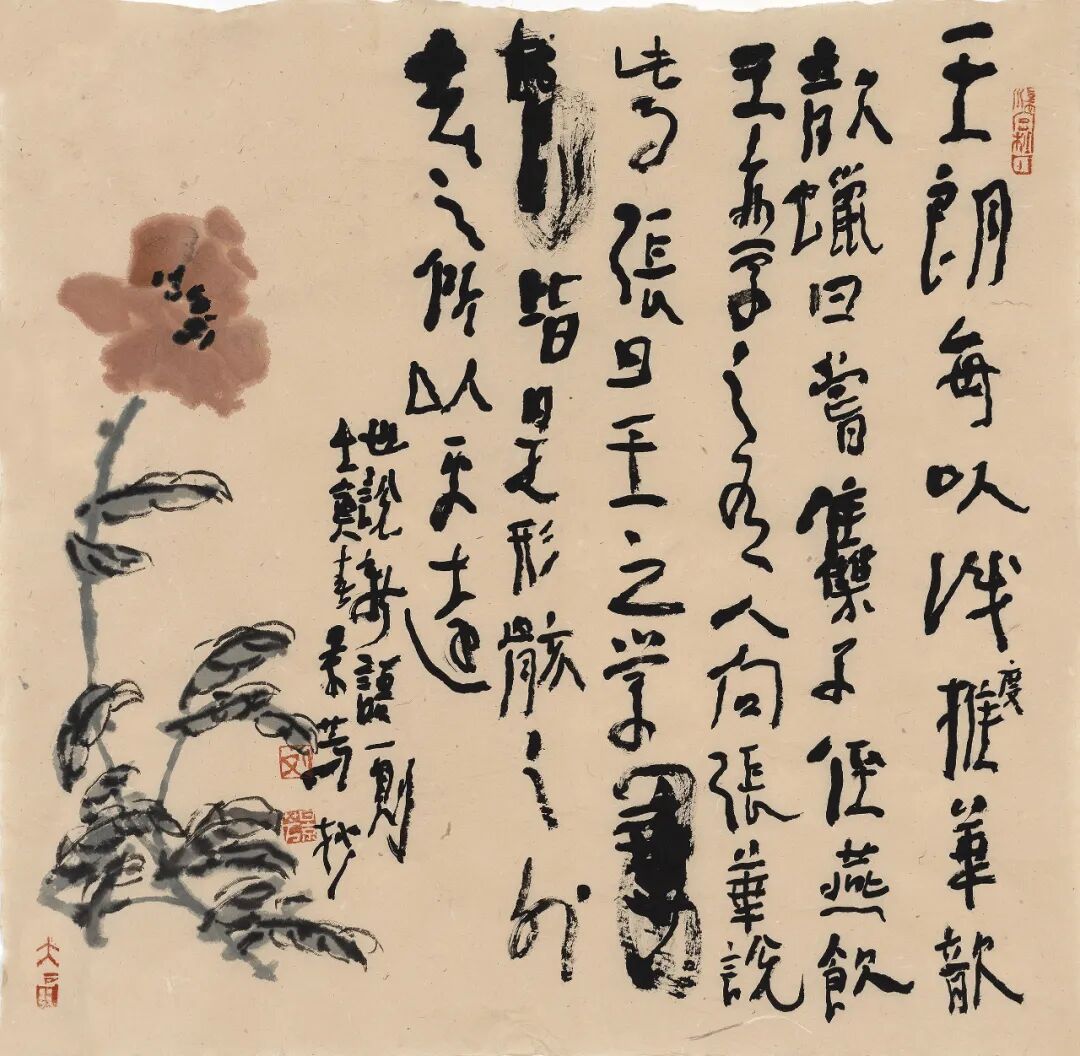 王朗每以識度推華歆
歆蠟日嘗集子侄燕飲
王亦學之有人向張華說
此事張曰王之學
皆是形骸之外
去之所以更遠
世說新語一則
壬寅春 抄